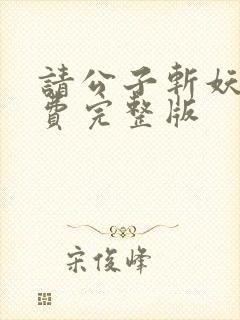 請公子斬妖
費完整版
宋俊峰